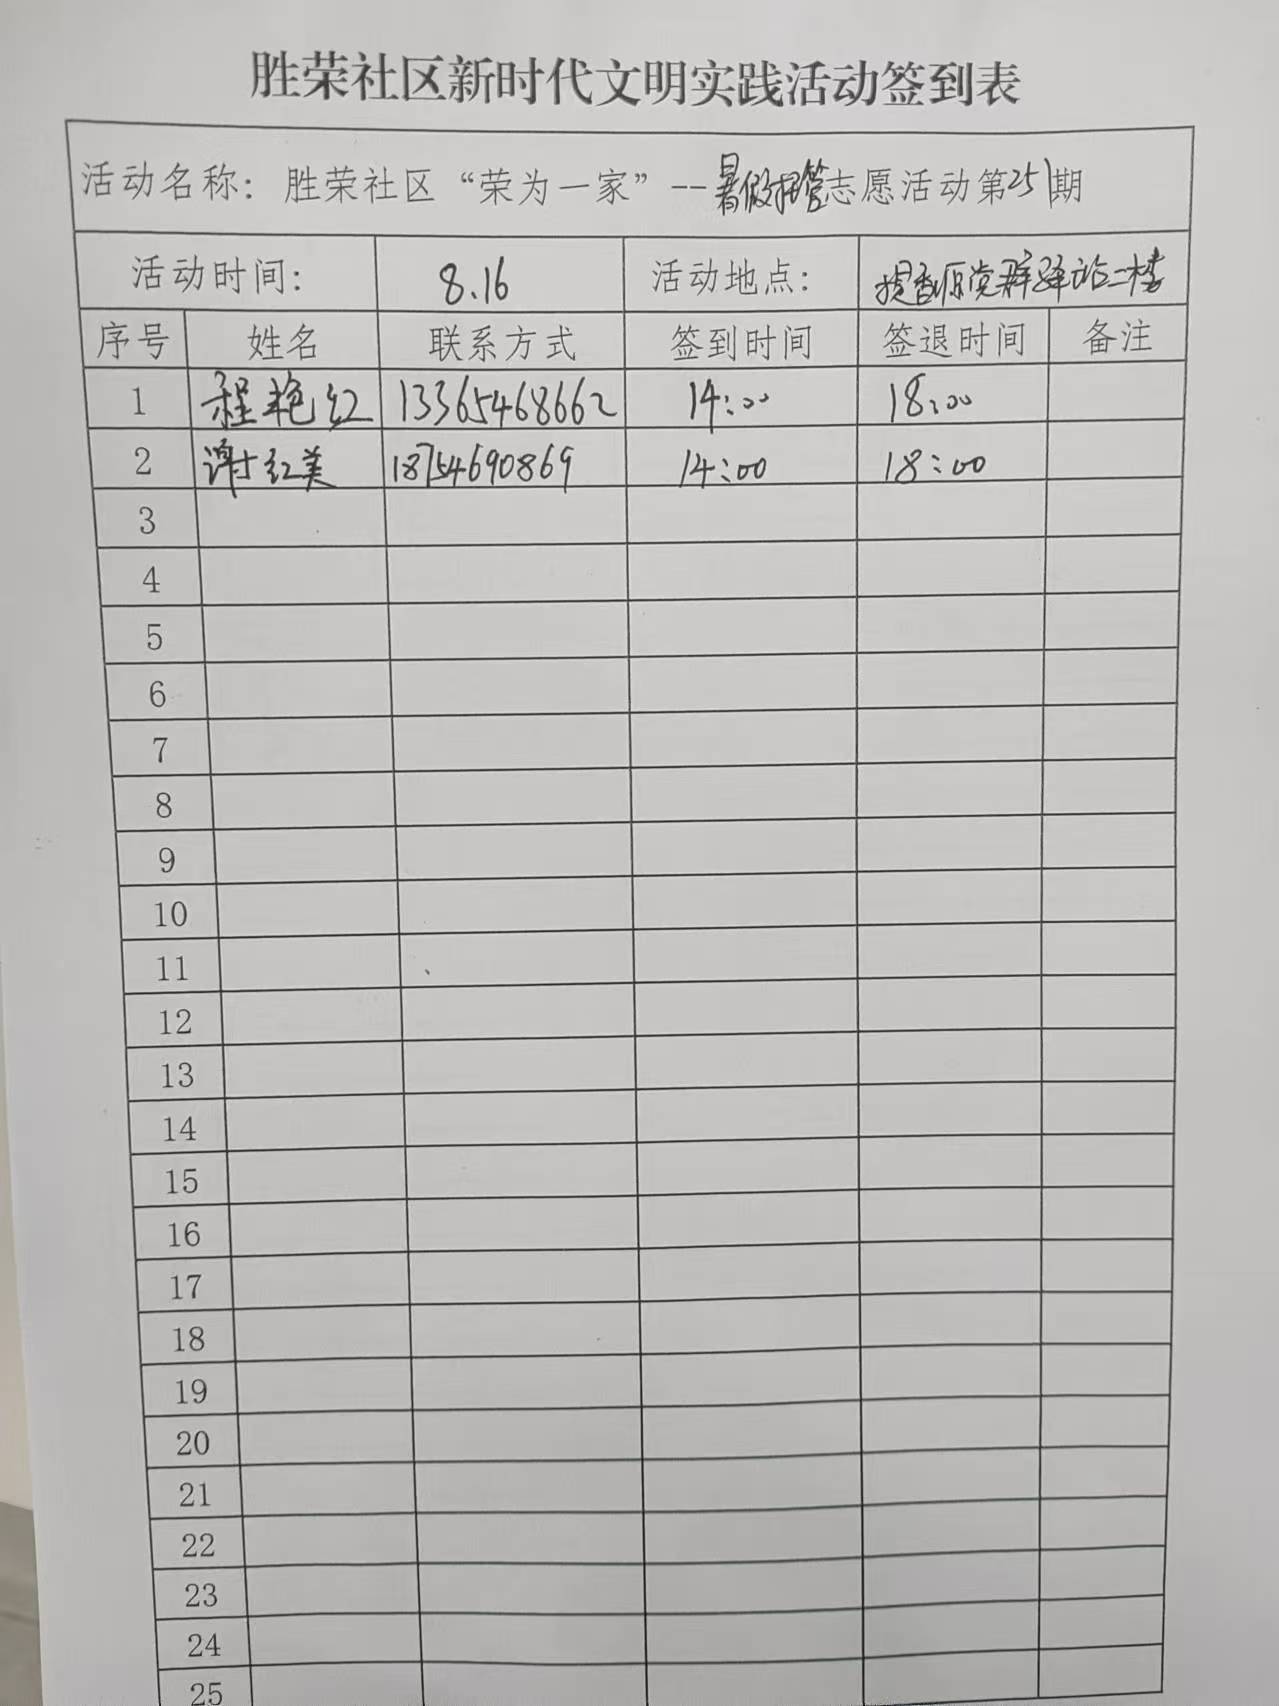 胜荣社区新时代文明实践活动签到表
活动名称：胜荣社区“荣为一家”--暑假托管志愿活动第251期
活动时间： 8.16 活动地点： 提香原党群驿站二楼
序号 姓名 联系方式 签到时间 签退时间 备注
1 程艳红 13365468662 14:00 18:00
2 谢红美 18754690869 14:00 18:00
3
4
5
6
7
8
9
10
11
12
13
14
15
16
17
18
19
20
21
22
23
24
25